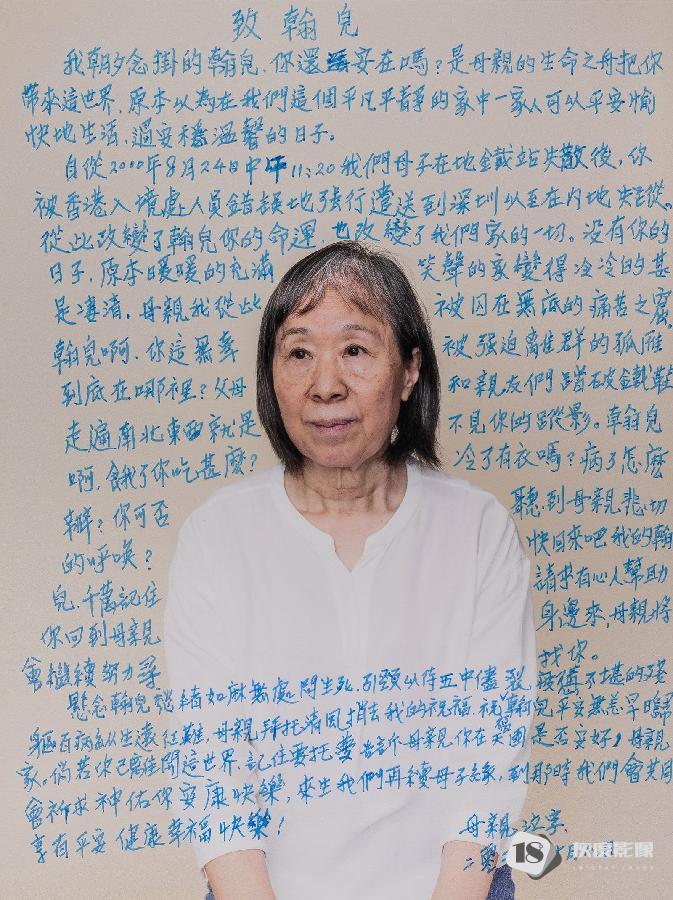 致翰兒
我朝夕念掛的翰兒,你還安在嗎?是母親的生命之母把你
帶來這世界,原本以為在我們這個平凡平靜的家中一家人可以平安愉
快地生活,過安穩溫馨的日子。
自從2000年8月24日中午11:20我們母子在地鐵站失散後,你
被香港入境處人員錯誤地強行遣送到深圳以至在內地失蹤。
從此改變了翰兒你的命運,也改變了我們家的一切。没有你的
日子,原本暖暖的充滿 笑聲的家變得冷冷的甚
是凄清,母親我從此 被囚在無底的痛苦之窟。
翰兒啊,你這無辜 被强迫離群的孤雁
到底在哪裡?父母 和親友們踏破鐵鞋
走遍南北東西就是 不見你的蹤影。翰兒
啊,餓了你吃甚麽? 冷了有衣嗎?病了怎麽
辦?你可否 聽到母親悲切
的呼喚? 快回來吧我的翰
兒,千萬記住 請求有心人幫助
你回到母親 身邊來,母親將
會繼續努力尋 找你。
懸念翰兒 緒如麻無處問生死,引頸以待五中儘裂 疲憊不堪的殘
軀百病叢生遠 難,母親拜托清風捎去我的祝福,祝翰兒平安無恙早歸
家。倘若你已離開這世界,記住要托夢 母親你在天國是否安好,母親
會祈求神佑你安康快樂,來生我們再續母子緣,到那時我們會共同
享有平安健康幸福快樂!
母親 字
18 影像